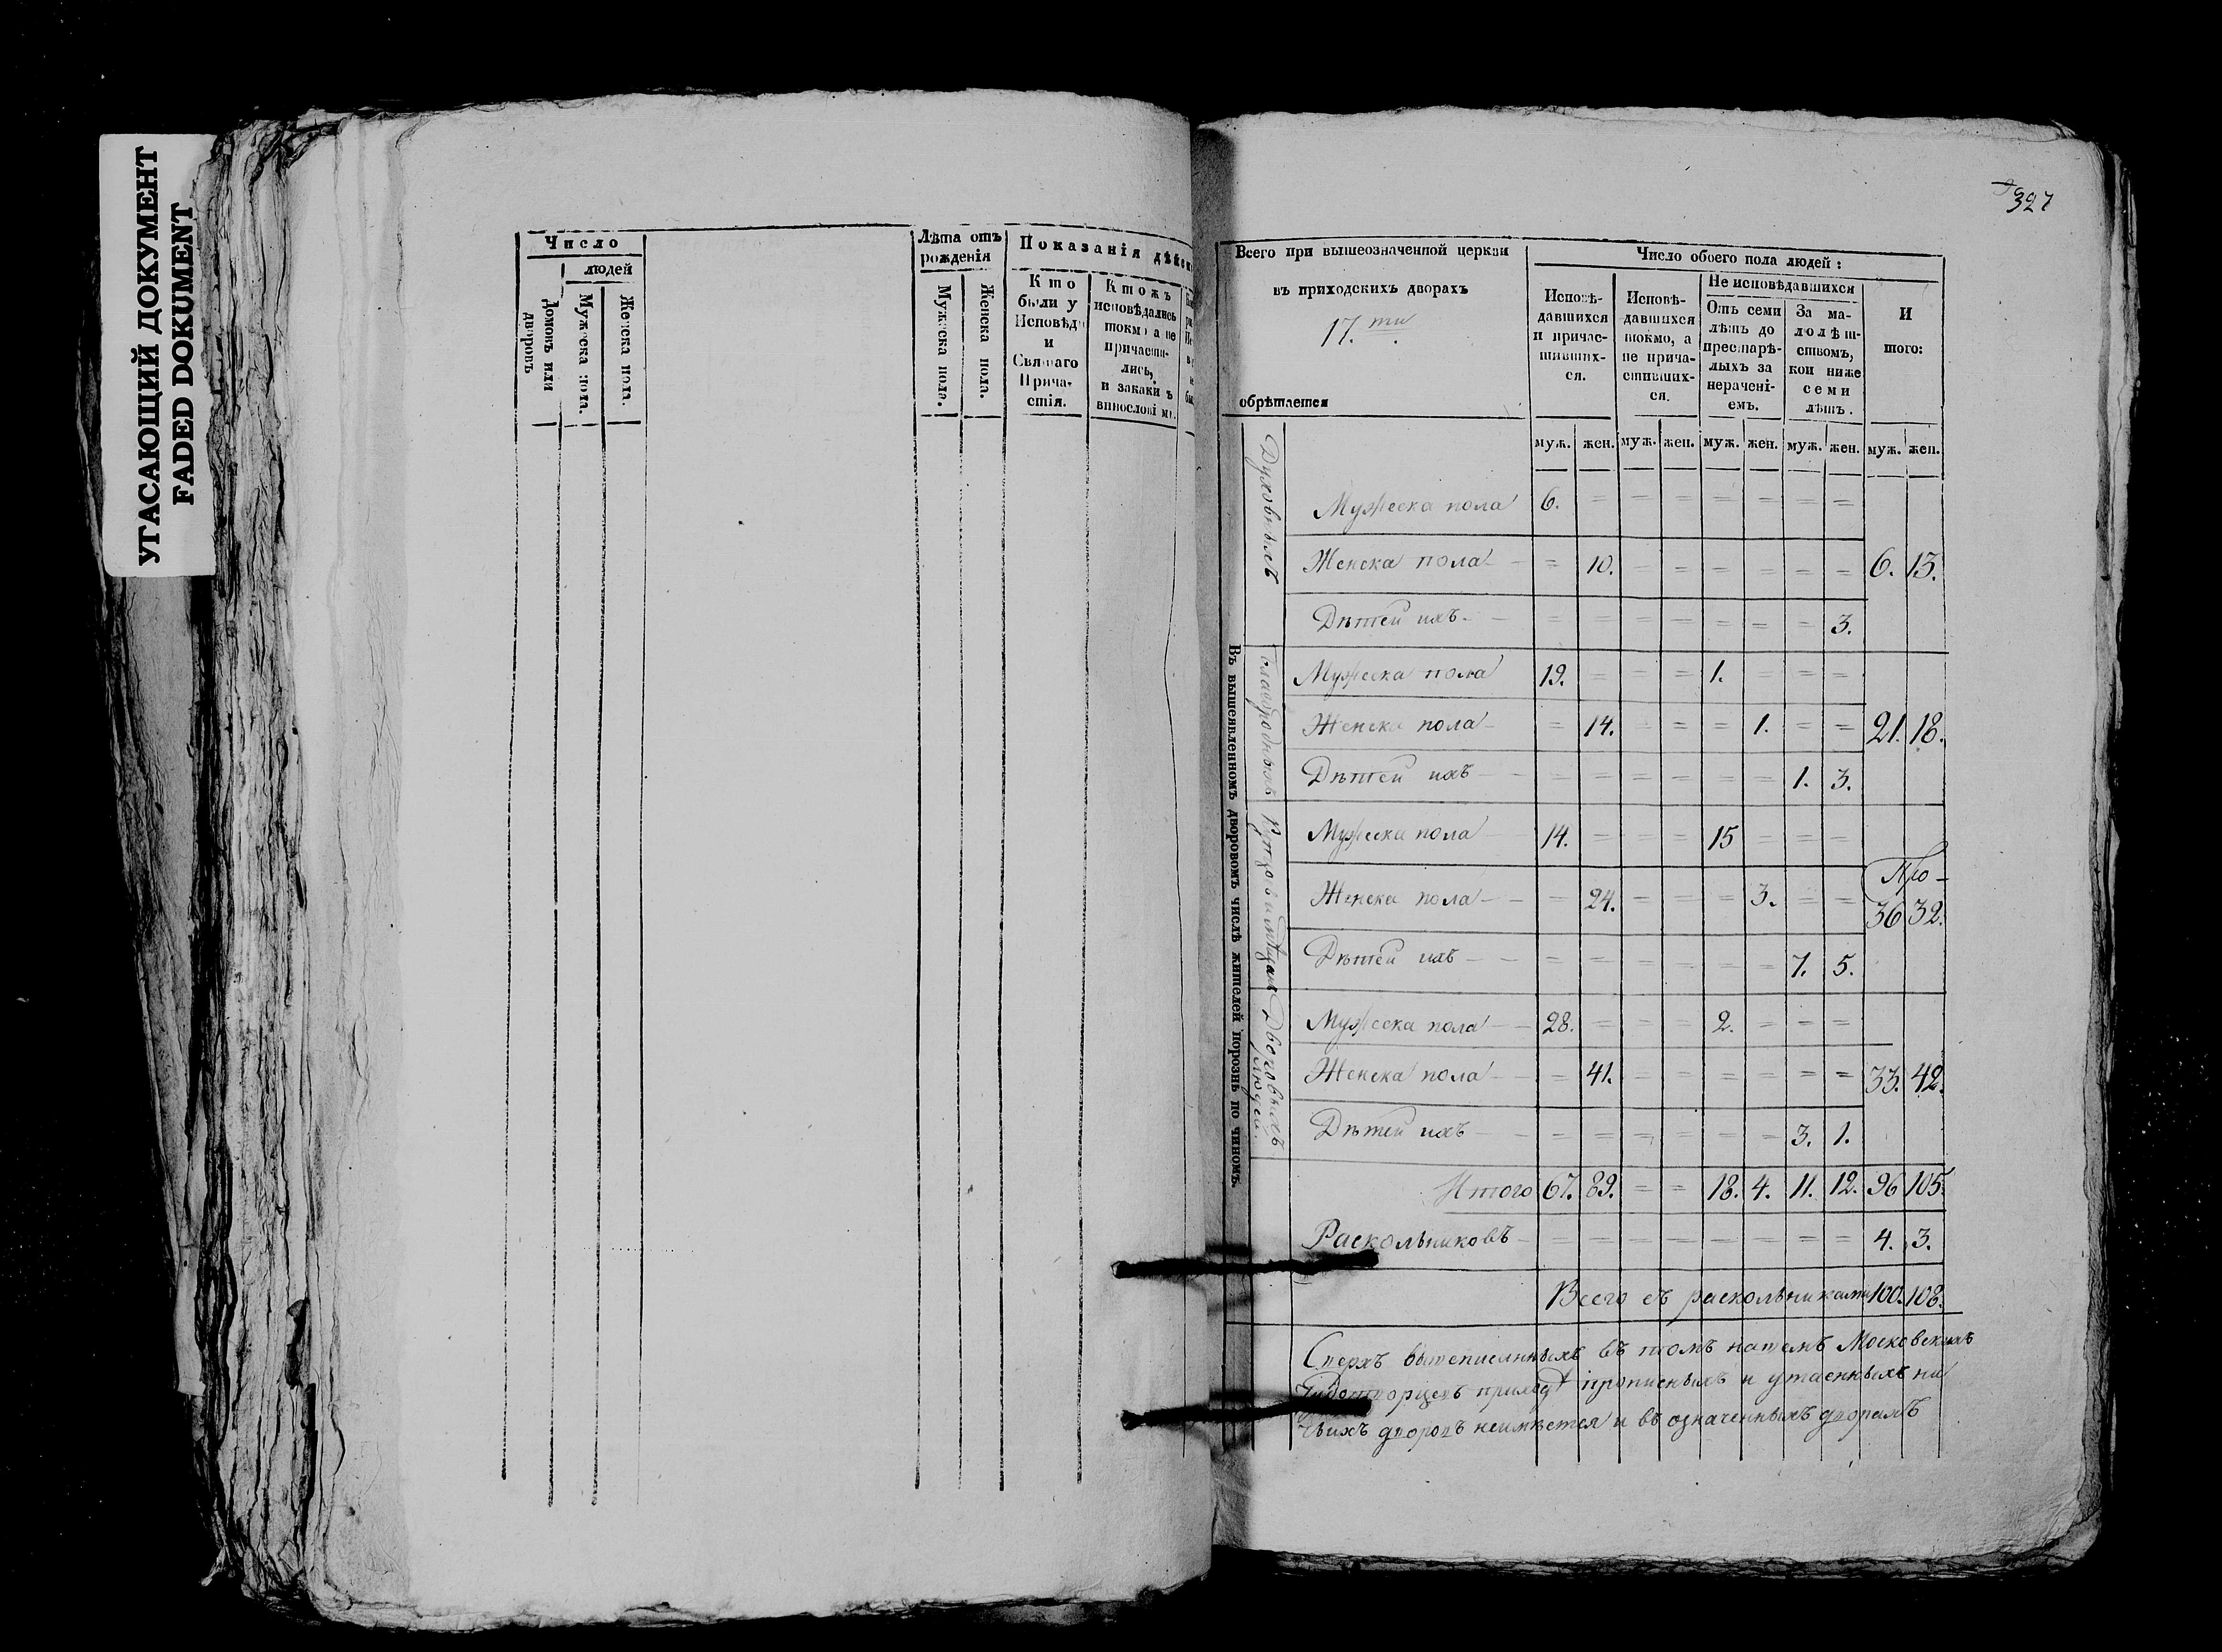 УГАСАЮЩИЙ ДОКУМЕНТ
FADED DOKUMENT
Число
людей
Домовъ или дворовъ
Мужеска пола.
Женска пола.
Лѣта отъ рожденія
Мужеска пола.
Женска пола.
Показанія дѣйс
Кто были у Исповѣди и Святаго Причастія.
Ктожъ исповѣдались токмо а не причастились, и закаки ъ винословіемъ.
327
Всего при вышеозначенной церкви
въ приходскихъ дворахъ
17.ти
обрѣтается
Число обоего пола людей:
Исповѣ-
давшихся
и причас-
тивших-
ся.
Исповѣ-
давшихся
токмо, а
не прича-
стивших-
ся.
Не исповѣдавшихся
Отъ семи
лѣтъ до
престарѣ-
лыхъ за
нерачені-
емъ.
За ма-
лолѣт-
ствомъ,
кои ниже
семи
лѣтъ.
И
того:
муж. жен. муж. жен. муж. жен. муж. жен. муж. жен.
Въ вышеявленномъ дворовомъ числѣ жителей порознь по чиномъ.
Духовныхъ
Мужеска пола 6. = = = = = = =
Женска пола = 10. = = = = = = 6. 13.
Дѣтей ихъ = = = = = = = 3.
Благородныхъ
Мужеска пола 19. = = = 1. = = =
Женска пола = 14. = = = 1. = = 21. 18.
Дѣтей ихъ = = = = = = 1. 3.
Купцовъ и мѣщан
Мужеска пола 14. = = = 15 = = =
Женска пола = 24. = = = 3. = = 36 32.
Дѣтей ихъ = = = = = = 7. 5.
Дворовыхъ людей.
Мужеска пола 28. = = = 2. = = =
Женска пола = 41. = = = = = = 33. 42.
Дѣтей ихъ = = = = = = 3. 1.
Итого 67. 89. = = 18. 4. 11. 12. 96 105.
Раскольниковъ = = = = = = = = 4. 3.
Всего съ раскольниками 100. 108.
Сверхъ вышеписанныхъ въ томъ нашемъ Московскихъ
Чудотворцевъ приходѣ прописныхъ и утаенныхъ ни
чьихъ дворовъ неимѣется и въ означенныхъ дворахъ